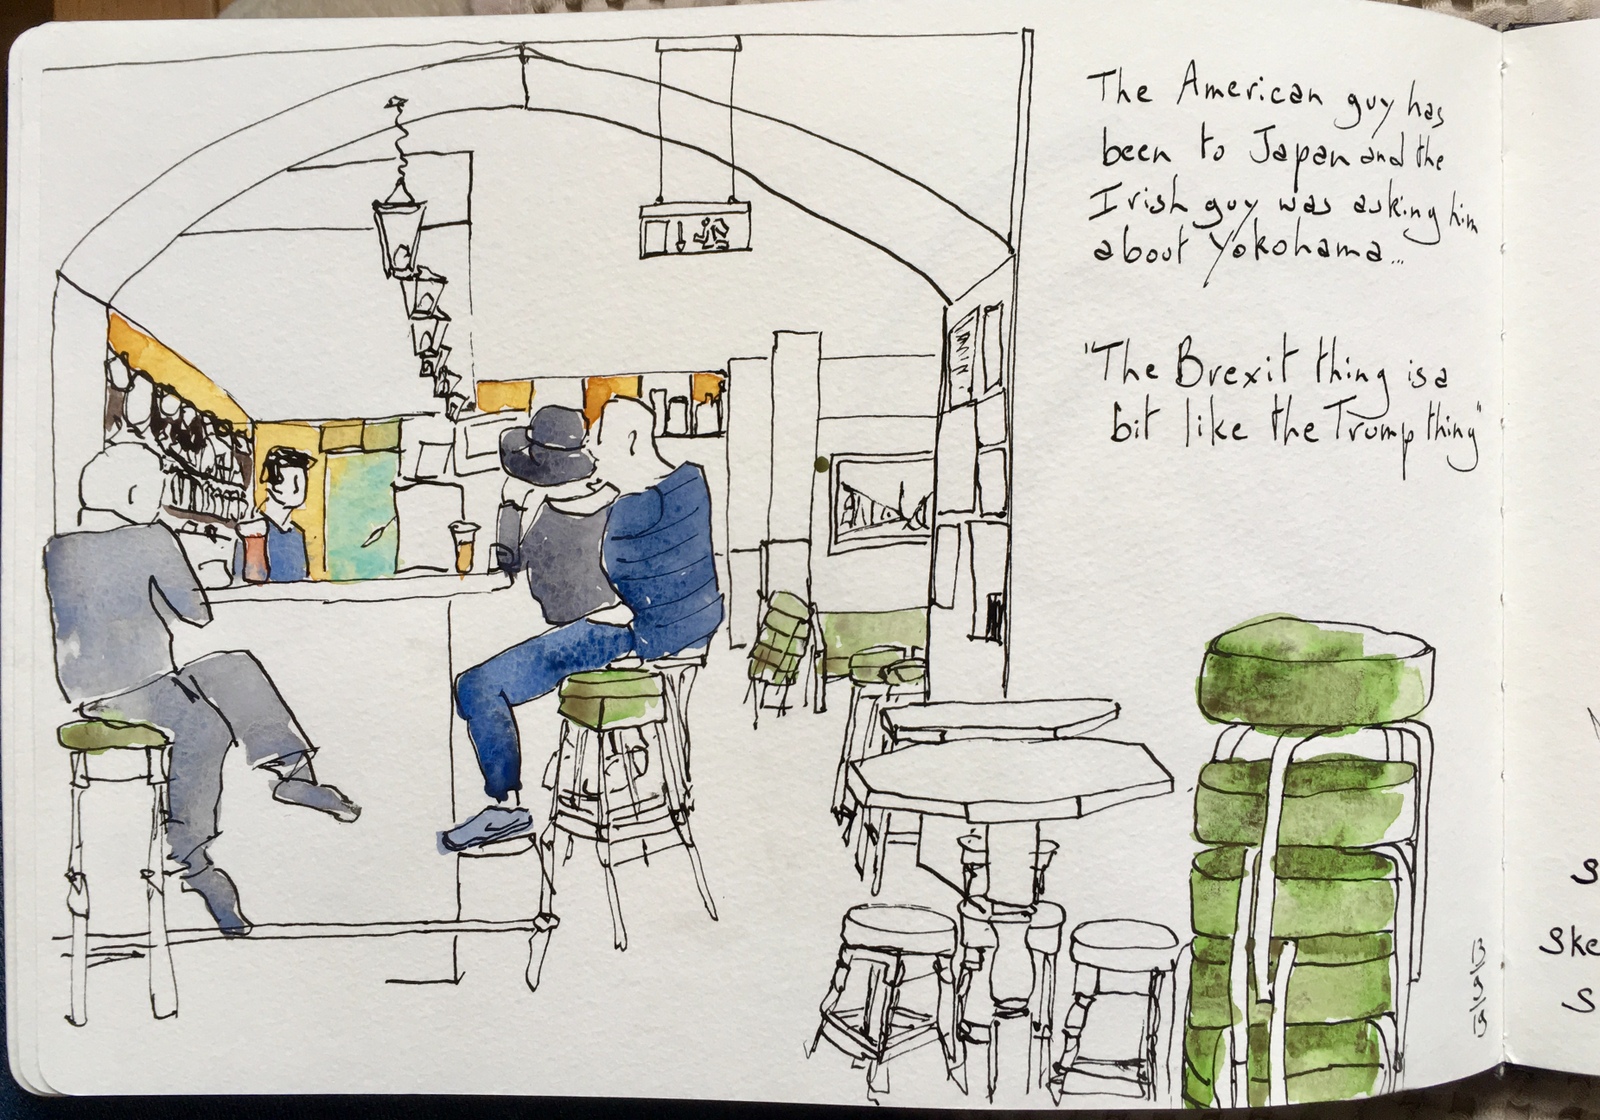 The American guy has
been to Japan and the
Irish guy was asking him
about Yokohama...
"The Brexit thing is a
bit like the Trump thing"
13/9/19
S
Ske
S